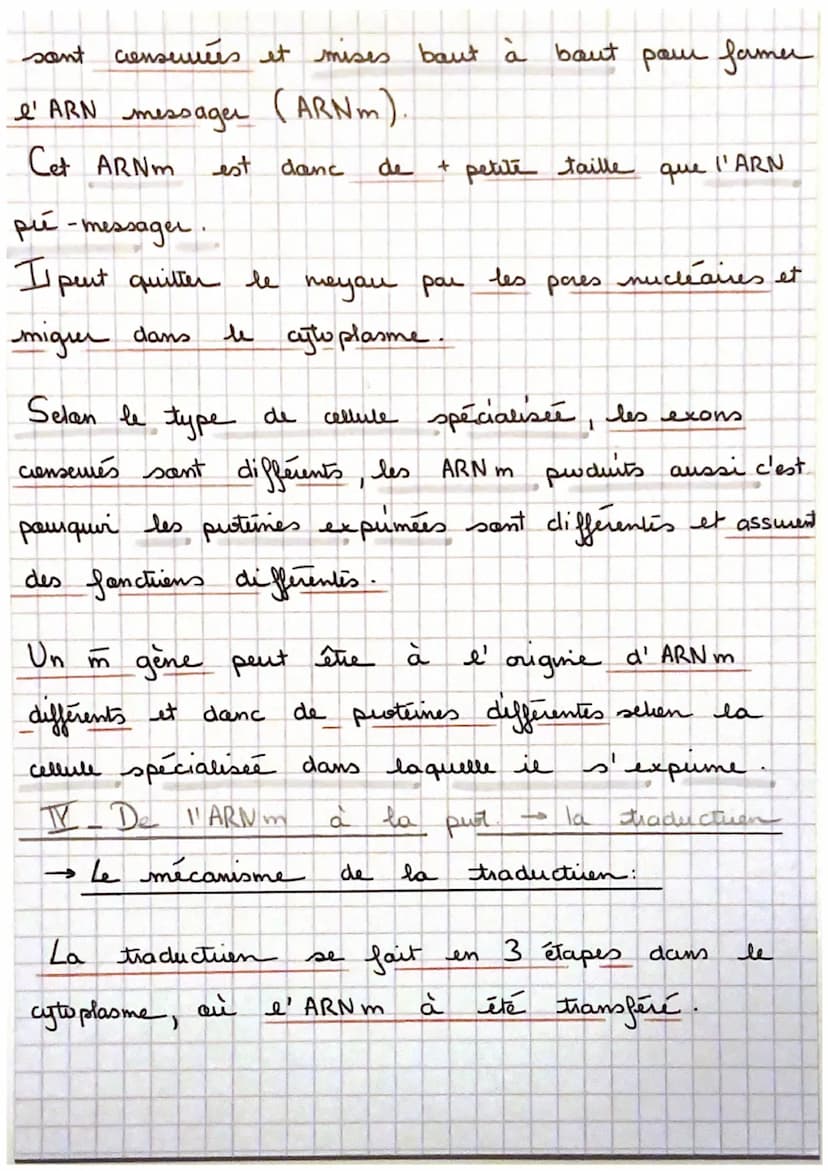 sont conservées et mises bout à bout pour former
l'ARN messager (ARNm).
Cet ARNm est donc de + petite taille que l'ARN
pré-messager.
Il peut quitter le noyau par les pores nucléaires et
migrer dans le cytoplasme.
Selon le type de cellule spécialisée, les exons
conservés sont différents, les ARNm produits aussi c'est
pourquoi les protéines exprimées sont différentes et assurent
des fonctions différentes.
Un m̄ gène peut être à l'origine d'ARNm
différents et donc de protéines différentes selon la
cellule spécialisée dans laquelle il s'exprime.
IV - De l'ARNm à la prot. → la traduction
→ Le mécanisme de la traduction:
La traduction se fait en 3 étapes dans le
cytoplasme, où l'ARNm à été transféré.